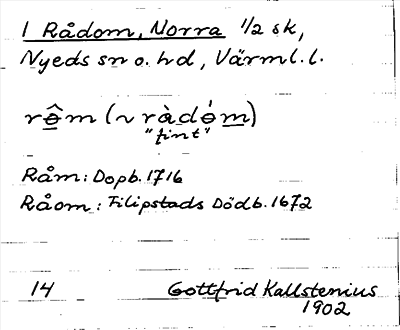 1 Rådom, Norra 1/2 sk,
Nyeds sn o. hd, Värml. l.
rɵ̂m (~ rȧ̀dɵ́m)
"fint"
Råm: Dopb. 1716
Råom: Filipstads Dödb. 1672
14 Gottfrid Kallstenius
1902